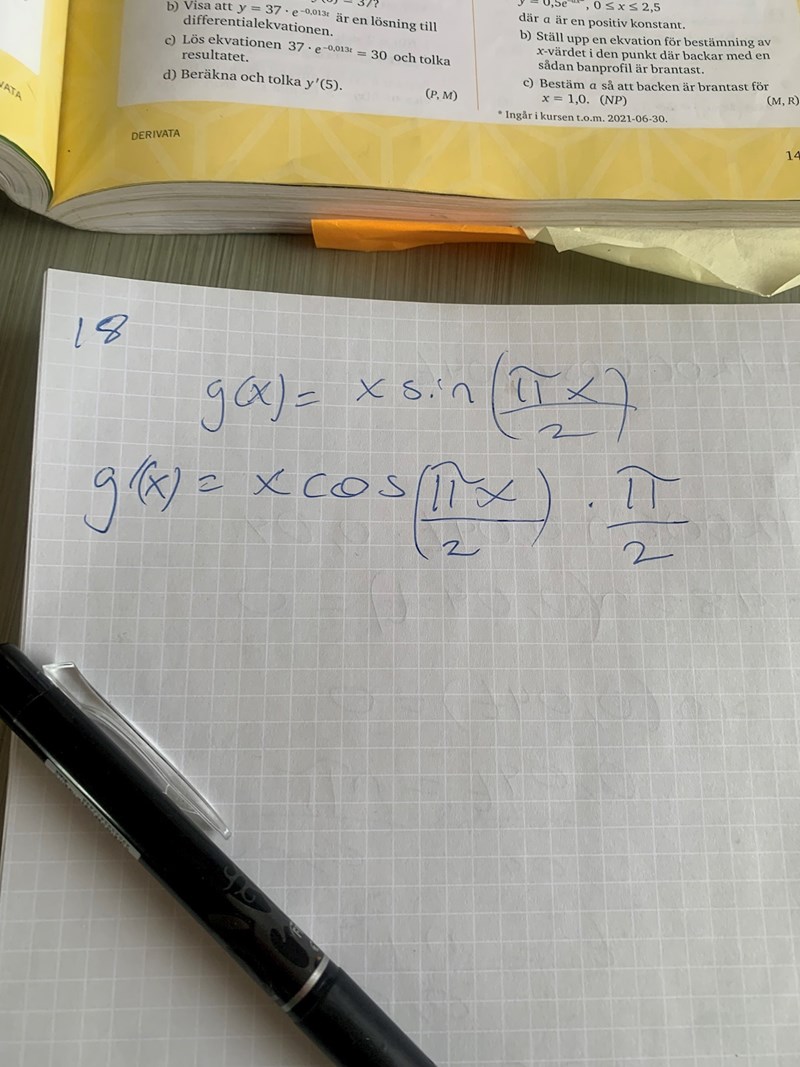 b) Visa att y = 37 · e^−0,013t är en lösning till
differentialekvationen.
c) Lös ekvationen 37 · e^−0,013t = 30 och tolka
resultatet.
d) Beräkna och tolka y′(5).
(P, M)
, 0 ≤ x ≤ 2,5
där a är en positiv konstant.
b) Ställ upp en ekvation för bestämning av
x-värdet i den punkt där backar med en
sådan banprofil är brantast.
c) Bestäm a så att backen är brantast för
x = 1,0. (NP)
(M, R)
* Ingår i kursen t.o.m. 2021-06-30.
DERIVATA
14
18
g(x) = x sin(πx/2)
g'(x) = x cos(πx/2) · π/2